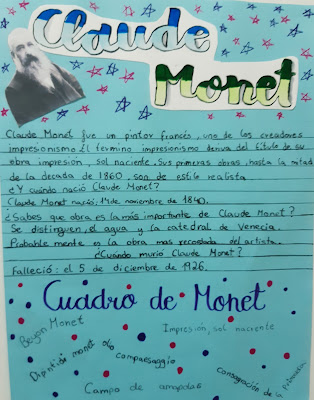 Claude
Monet
Claude Monet fue un pintor francés, uno de los creadores
impresionismo. El termino impresionismo deriva del título de su
obra impresión, sol naciente. Sus primeras obras, hasta la mitad
de la década de 1860, son de estilo realista
¿Y cuándo nació Claude Monet?
Claude Monet nació: 14 de noviembre de 1840.
¿Sabes que obra es la más importante de Claude Monet?
Se distinguen el agua y la catedral de Venecia.
Probablemente es la obra mas recordada del artista.
¿Cuándo murió Claude Monet?
Falleció: el 5 de diciembre de 1926.
Cuadro de Monet
Monet
Impresión, sol naciente
monet olio
compaesaggio
de la
Campo de amapolas